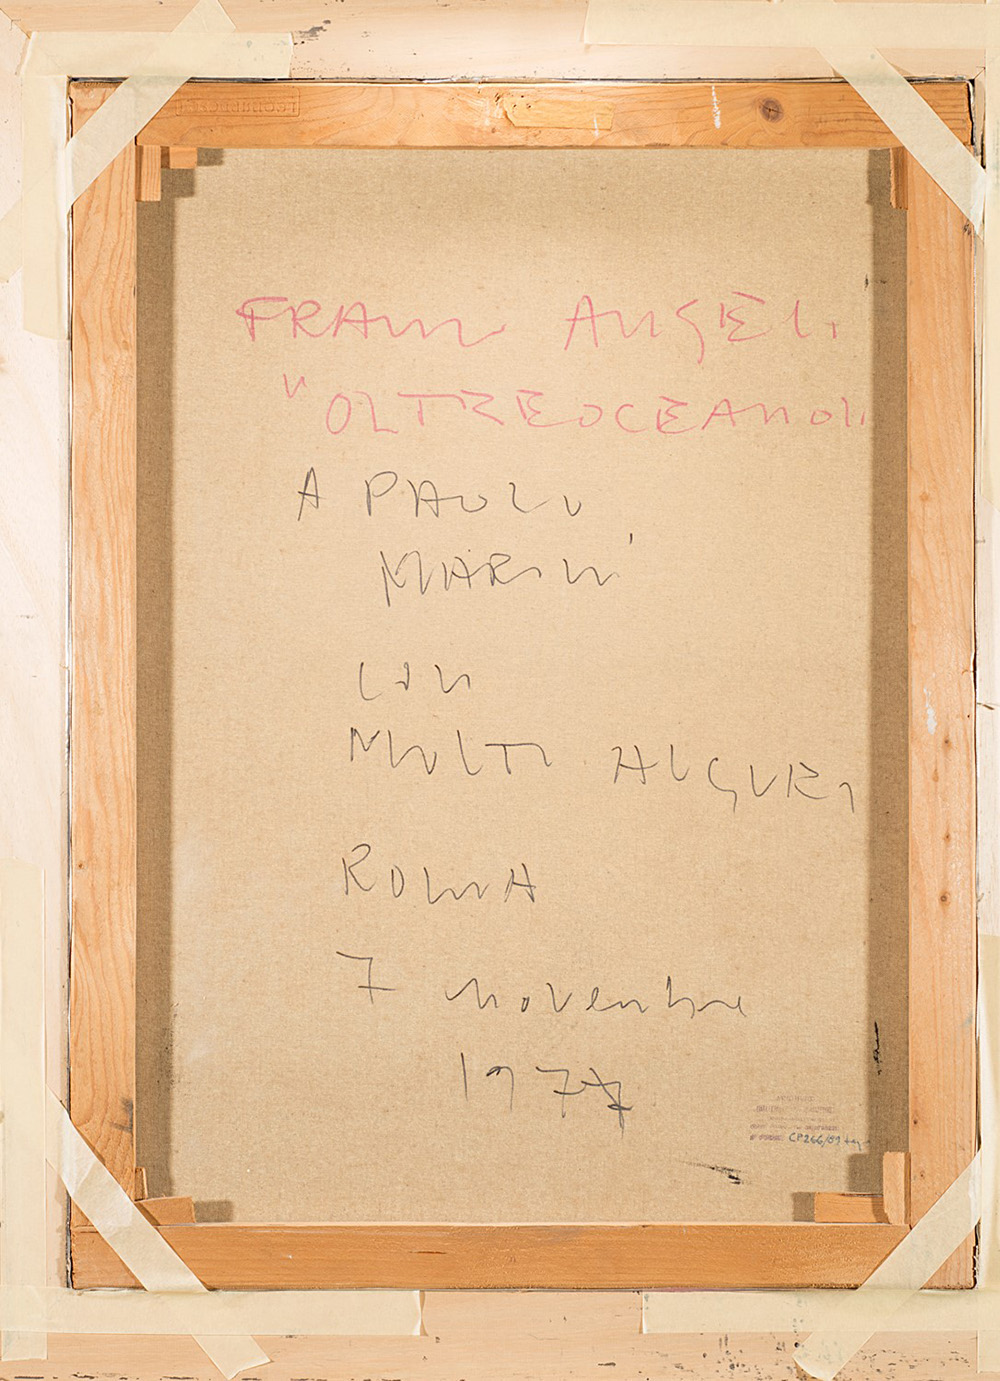 FRANCO ANGELI
"OLTREOCEANO"
A PAOLO
MARINI
CON
MOLTI AUGURI
ROMA
7 novembre
1977
CP266/09